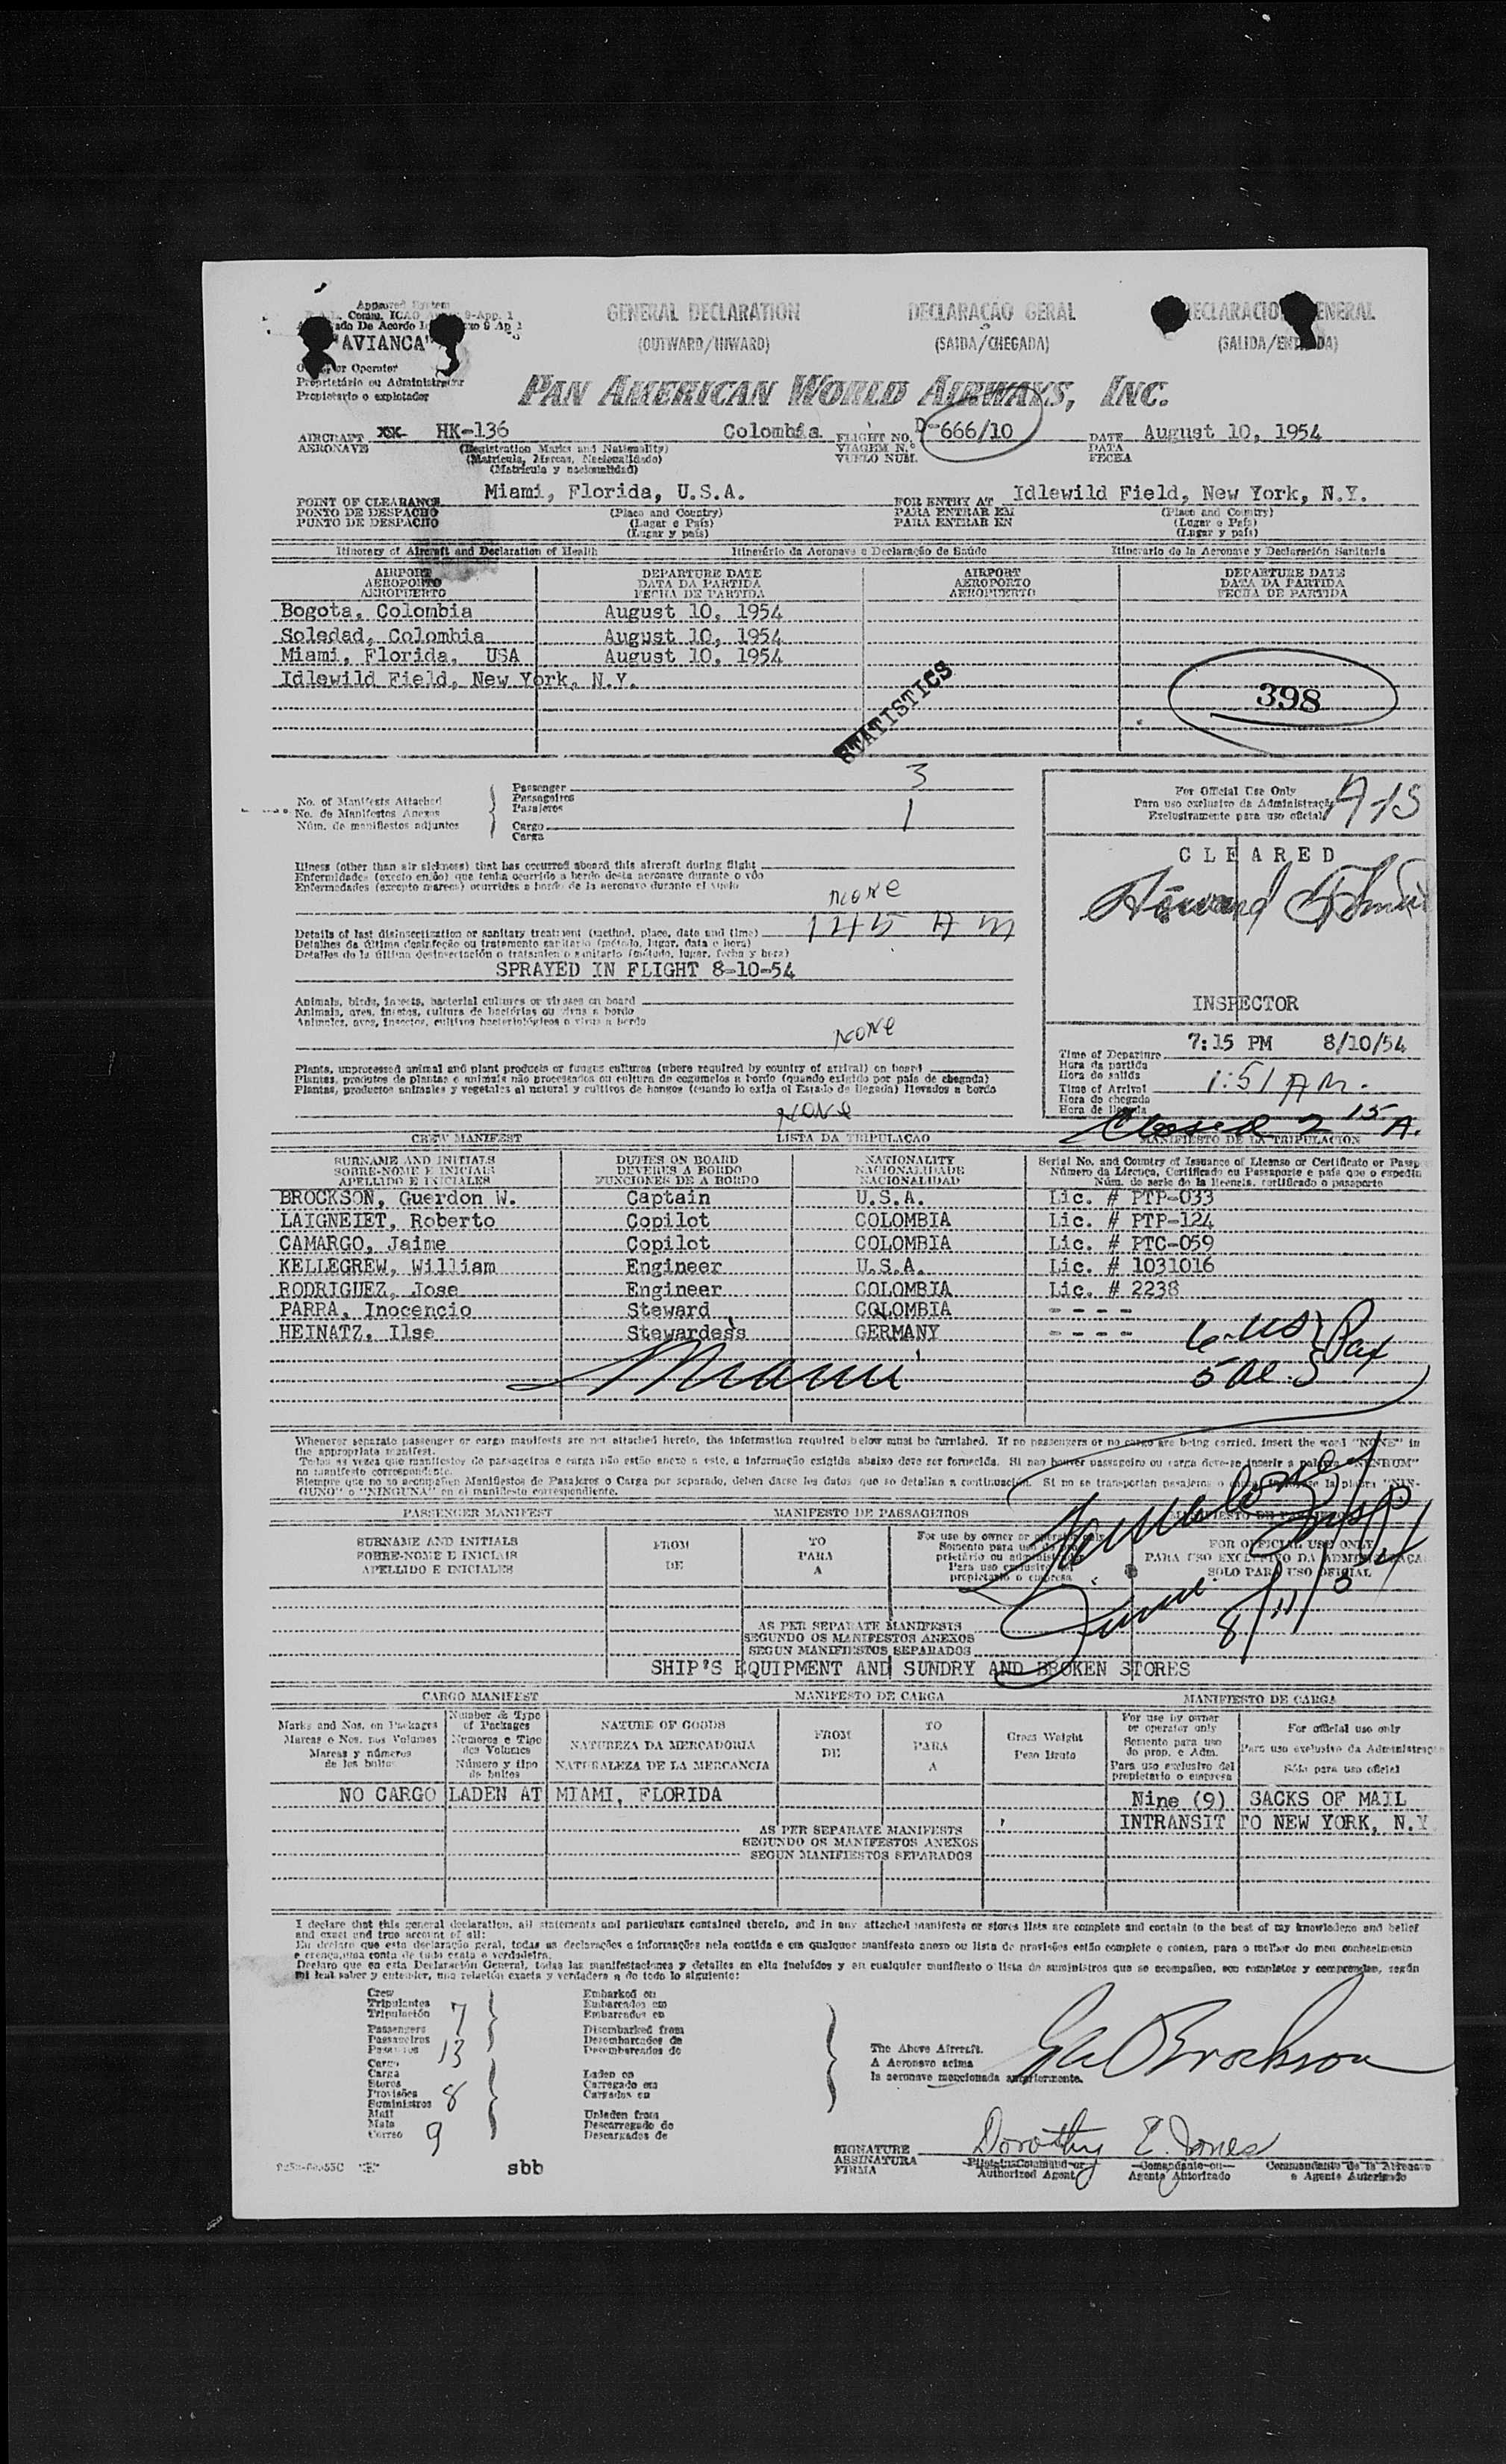 Approved System
Comm. ICAO 9-App. 1
De Acordo 9 Ap 1
"AVIANCA"
or Operator
Proprietário ou Administrador
Propietario o explotador
GENERAL DECLARATION
(OUTWARD/INWARD)
DECLARAÇÃO GERAL
(SAIDA/CHEGADA)
DECLARACION GENERAL
(SALIDA/ENTRADA)
PAN AMERICAN WORLD AIRWAYS, INC.
AIRCRAFT XX- HK-136 Colombia FLIGHT NO. D-666/10 DATE August 10, 1954
AERONAVE (Registration Marks and Nationality) VIAGEM N.º DATA
(Matrícula, Marcas, Nacionalidade) VUELO NUM. FECHA
(Matrícula y nacionalidad)
POINT OF CLEARANCE Miami, Florida, U.S.A. FOR ENTRY AT Idlewild Field, New York, N.Y.
PONTO DE DESPACHO (Place and Country) PARA ENTRAR EM (Place and Country)
PUNTO DE DESPACHO (Lugar e País) PARA ENTRAR EN (Lugar e País)
(Lugar y país) (Lugar y país)
Itinerary of Aircraft and Declaration of Health Itinerário da Aeronave e Declaração de Saúde Itinerario de la Aeronave y Declaración Sanitaria
AIRPORT DEPARTURE DATE AIRPORT DEPARTURE DATE
AEROPORTO DATA DA PARTIDA AEROPORTO DATA DA PARTIDA
AEROPUERTO FECHA DE PARTIDA AEROPUERTO FECHA DE PARTIDA
Bogota, Colombia August 10, 1954
Soledad, Colombia August 10, 1954
Miami, Florida, USA August 10, 1954
Idlewild Field, New York, N.Y.
STATISTICS
398
No. of Manifests Attached
No. de Manifestos Anexos
Núm. de manifiestos adjuntos
Passenger 3
Passageiros
Pasajeros
Cargo 1
Carga
For Official Use Only
Para uso exclusivo da Administração
Exclusivamente para uso oficial
A-15
CLEARED
Howard
INSPECTOR
Illness (other than air sickness) that has occurred aboard this aircraft during flight
Enfermidades (exceto enjôo) que tenha ocorrido a bordo desta aeronave durante o vôo
Enfermedades (excepto mareos) ocurridas a bordo de la aeronave durante el vuelo
none
Details of last disinsectization or sanitary treatment (method, place, date and time) 1245 AM
Detalhes da última desinfeção ou tratamento sanitario (método, lugar, data e hora)
Detalles de la última desinsectación o tratamiento sanitario (método, lugar, fecha y hora)
SPRAYED IN FLIGHT 8-10-54
Animals, birds, insects, bacterial cultures or viruses on board
Animais, aves, insetos, cultura de bactérias ou virus a bordo
Animales, aves, insectos, cultivos bacteriológicos o virus a bordo
none
Plants, unprocessed animal and plant products or fungus cultures (where required by country of arrival) on board
Plantas, produtos de plantas e animais não processados ou cultura de cogumelos a bordo (quando exigido por país de chegada)
Plantas, productos animales y vegetales al natural y cultivos de hongos (cuando lo exija el Estado de llegada) llevados a bordo
none
7:15 PM 8/10/54
Time of Departure
Hora da partida
Hora de salida
Time of Arrival 1:51 AM.
Hora de chegada
Hora de llegada
Closed 2 15 A.
CREW MANIFEST LISTA DA TRIPULAÇÃO MANIFIESTO DE LA TRIPULACION
SURNAME AND INITIALS DUTIES ON BOARD NATIONALITY Serial No. and Country of Issuance of License or Certificate or Passp
SOBRE-NOME E INICIAIS DEVERES A BORDO NACIONALIDADE Número da Licença, Certificado ou Passaporte e país que o expediu
APELLIDO E INICIALES FUNCIONES DE A BORDO NACIONALIDAD Núm. de serie de la licencia, certificado o pasaporte
BROCKSON, Guerdon W. Captain U.S.A. Lic. # PTP-033
LAIGNEIET, Roberto Copilot COLOMBIA Lic. # PTP-124
CAMARGO, Jaime Copilot COLOMBIA Lic. # PTC-059
KELLEGREW, William Engineer U.S.A. Lic. # 1031016
RODRIGUEZ, Jose Engineer COLOMBIA Lic. # 2238
PARRA, Inocencio Steward COLOMBIA - - - -
HEINATZ, Ilse Stewardess GERMANY - - - -
6-US } Pax
5 al.
Miami
Whenever separate passenger or cargo manifests are not attached hereto, the information required below must be furnished. If no passengers or no cargo are being carried, insert the word "NONE" in
the appropriate manifest.
Todas as vezes que manifestos de passageiros e carga não estão anexo a este, a informação exigida abaixo deve ser fornecida. Si nao houver passageiro ou carga deve-se inserir a palavra "NENHUM"
no manifesto correspondente.
Siempre que no se acompañen Manifiestos de Pasajeros o Carga por separado, deben darse los datos que se detallan a continuación. Si no se transportan pasajeros o carga, insértese la plabra "NIN-
GUNO" o "NINGUNA" en el manifiesto correspondiente.
PASSENGER MANIFEST MANIFESTO DE PASSAGEIROS
SURNAME AND INITIALS FROM TO For use by owner or operator only FOR OFFICIAL USE ONLY
SOBRE-NOME E INICIAIS DE PARA Somento para uso do proprietário ou administrador PARA USO EXCLUSIVO DA ADMINISTRAÇA
APELLIDO E INICIALES A Para uso exclusivo del propietario o empresa SOLO PARA USO OFICIAL
8/11/54
AS PER SEPARATE MANIFESTS
SEGUNDO OS MANIFESTOS ANEXOS
SEGUN MANIFIESTOS SEPARADOS
SHIP'S EQUIPMENT AND SUNDRY AND BROKEN STORES
CARGO MANIFEST MANIFESTO DE CARGA MANIFIESTO DE CARGA
Marks and Nos. on Packages
Marcas e Nos. nos Volumes
Marcas y números
de los bultos
Number & Type
of Packages
Numeros e Tipo
dos Volumes
Número y tipo
de bultos
NATURE OF GOODS
NATUREZA DA MERCADORIA
NATURALEZA DE LA MERCANCIA
FROM
DE
TO
PARA
A
Gross Weight
Peso Bruto
For use by owner
or operator only
Somento para uso
do prop. e Adm.
Para uso exclusivo del
propietario o empresa
For official use only
Para uso exclusivo da Administraç
Sólo para uso oficial
NO CARGO LADEN AT MIAMI, FLORIDA Nine (9) SACKS OF MAIL
INTRANSIT TO NEW YORK, N.Y.
AS PER SEPARATE MANIFESTS
SEGUNDO OS MANIFESTOS ANEXOS
SEGUN MANIFIESTOS SEPARADOS
I declare that this general declaration, all statements and particulars contained therein, and in any attached manifests or stores lists are complete and contain to the best of my knowledge and belief
and exact and true account of all:
Eu declaro que esta declaração geral, todas as declarações e informações nela contida e em qualquer manifesto anexo ou lista de provisões estão complete e contem, para o melhor do meu conhecimento
e crença,uma conta de tudo exata e verdadeira.
Declaro que en esta Declaración General, todas las manifestaciones y detalles en ella incluidos y en cualquier manifiesto o lista de suministros que se acompañen, son completos y comprenden, según
mi leal saber y entender, una relación exacta y verdadera a de todo lo siguiente:
Crew
Tripulantes 7
Tripulación
Passengers
Passageiros 13
Pasajeros
Cargo
Carga
Stores
Provisões 8
Suministros
Mail
Mala 9
Correo
Embarked on
Embarcados em
Embarcados en
Disembarked from
Desembarcados de
Desembarcados de
Laden on
Carregado em
Cargados en
Unladen from
Descarregado do
Descargados de
The Above Aircraft.
A Aeronave acima
la aeronave mencionada anteriormente.
GW Brockson
SIGNATURE Dorothy E. Jones
ASSINATURA Pilot-in-Command or Comandante ou Commandante de la Aeronave
FIRMA Authorized Agent Agente Autorizado o Agente Autorizado
"E" sbb